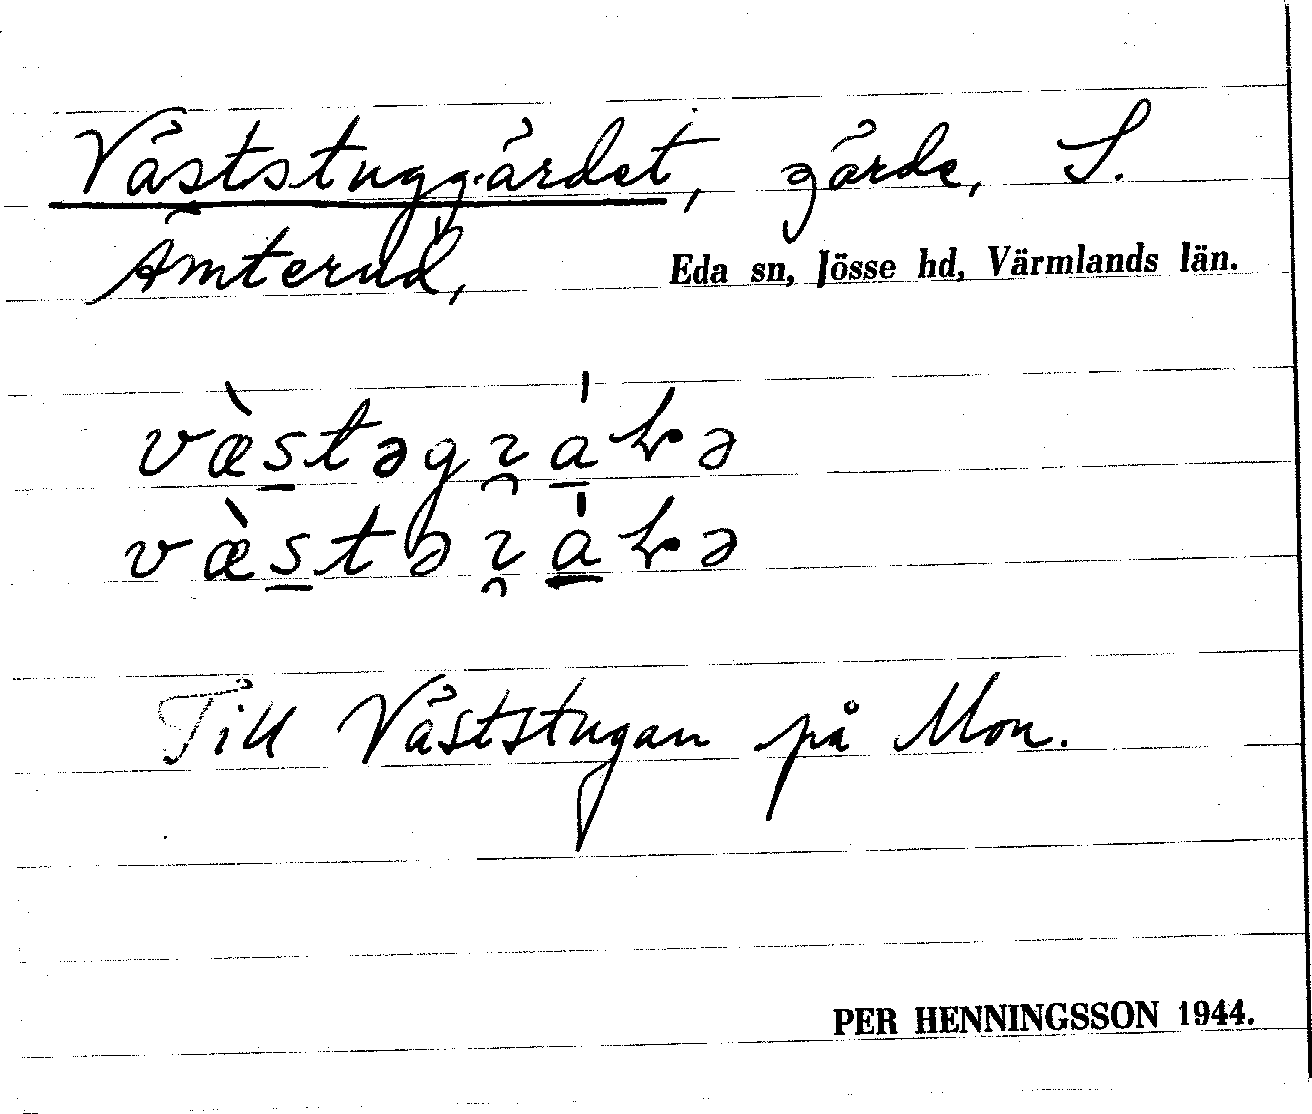 Väststuggärdet, gärde, S.
Ämterud, Eda sn, Jösse hd, Värmlands län.
Till Väststugan på Mon.
PER HENNINGSSON 1944.